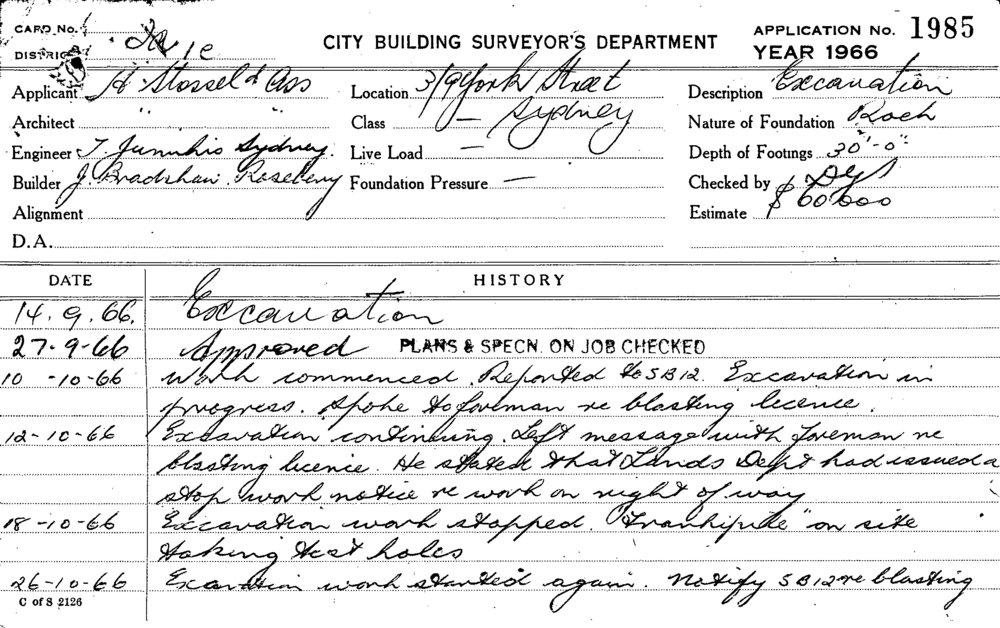 CARD No.
DISTRICT
CITY BUILDING SURVEYOR'S DEPARTMENT
APPLICATION No. 1985
YEAR 1966
Applicant H Stossel & Ass
Location 3/9 York Street
Sydney
Description Excavation
Architect " "
Class —
Nature of Foundation Rock
Engineer Sydney.
Live Load —
Depth of Footings 30'-0"
Builder J. Bradshaw. Rosebery
Foundation Pressure —
Checked by
Alignment
Estimate $ 60000
D.A.
DATE HISTORY
14.9.66. Excavation
27-9-66 Approved PLANS & SPECN. ON JOB CHECKED
10 -10-66 Work commenced. Reported to SB12. Excavation in
progress. Spoke to foreman re blasting licence.
12-10-66 Excavation continuing. Left message with foreman re
blasting licence. He stated that Lands Dept had issued a
stop work notice re work on right of way
18-10-66 Excavation work stopped. "Frankipile" on site
taking test holes
26-10-66 Excavation work started again. Notify SB12 re blasting
C of S 2126